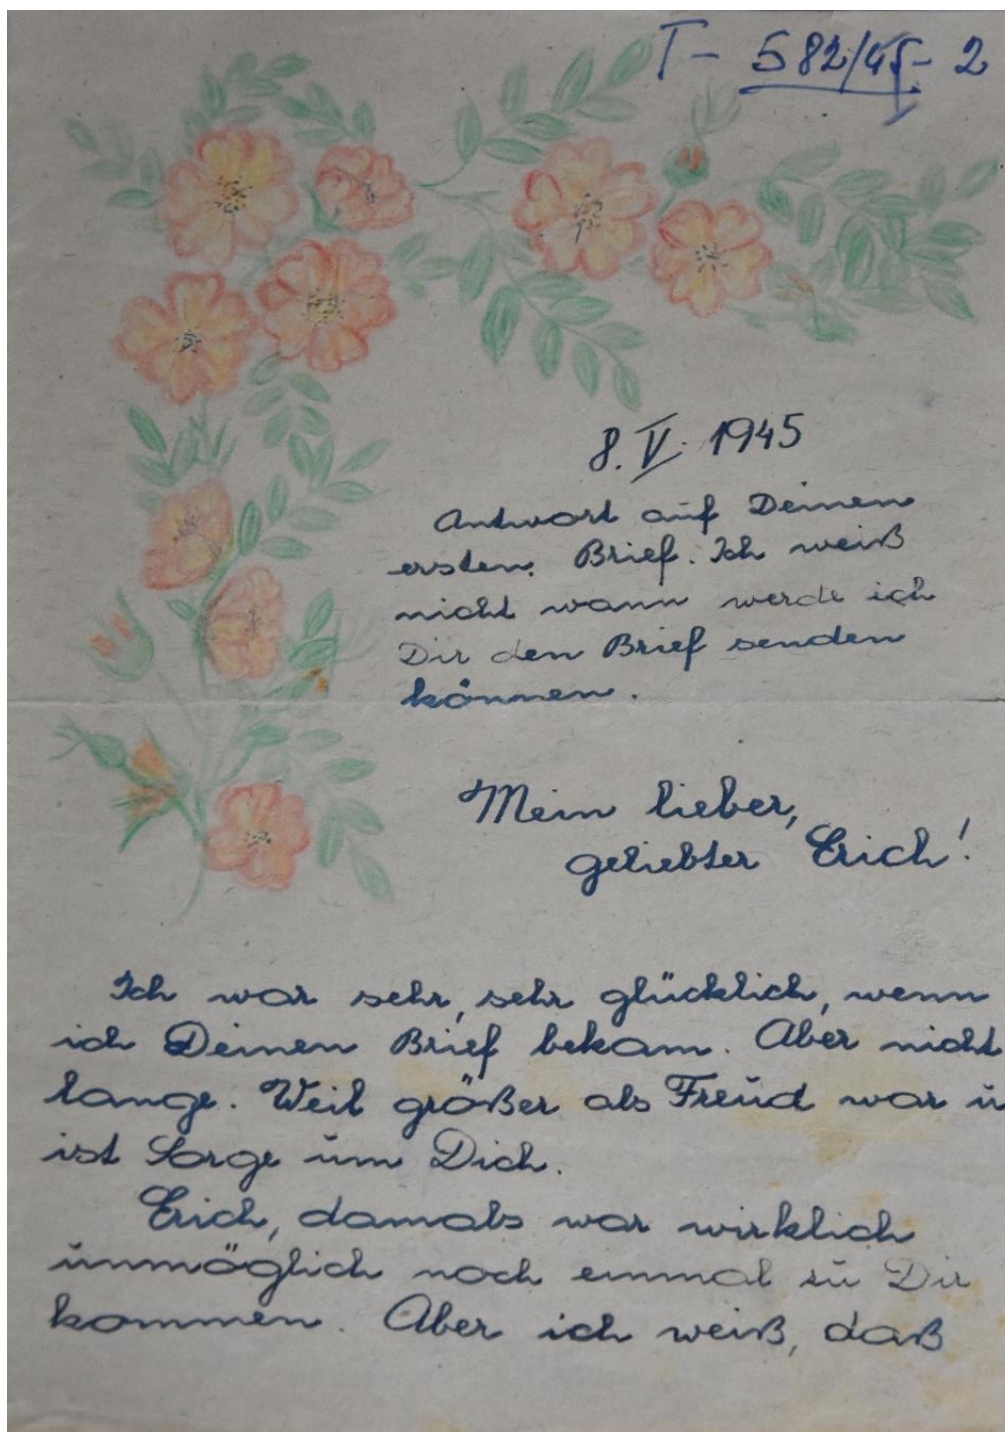 T - 582/45 - 2
8. V. 1945
Antwort auf Deinen
ersten Brief. Ich weiß
nicht wann werde ich
Dir den Brief senden
können.
Mein lieber,
geliebter Erich!
Ich war sehr, sehr glücklich, wenn
ich Deinen Brief bekam. Aber nicht
lange. Weil größer als Freud war u
ist Sorge um Dich.
Erich, damals war wirklich
unmöglich noch einmal zu Dir
kommen. Aber ich weiß, daß